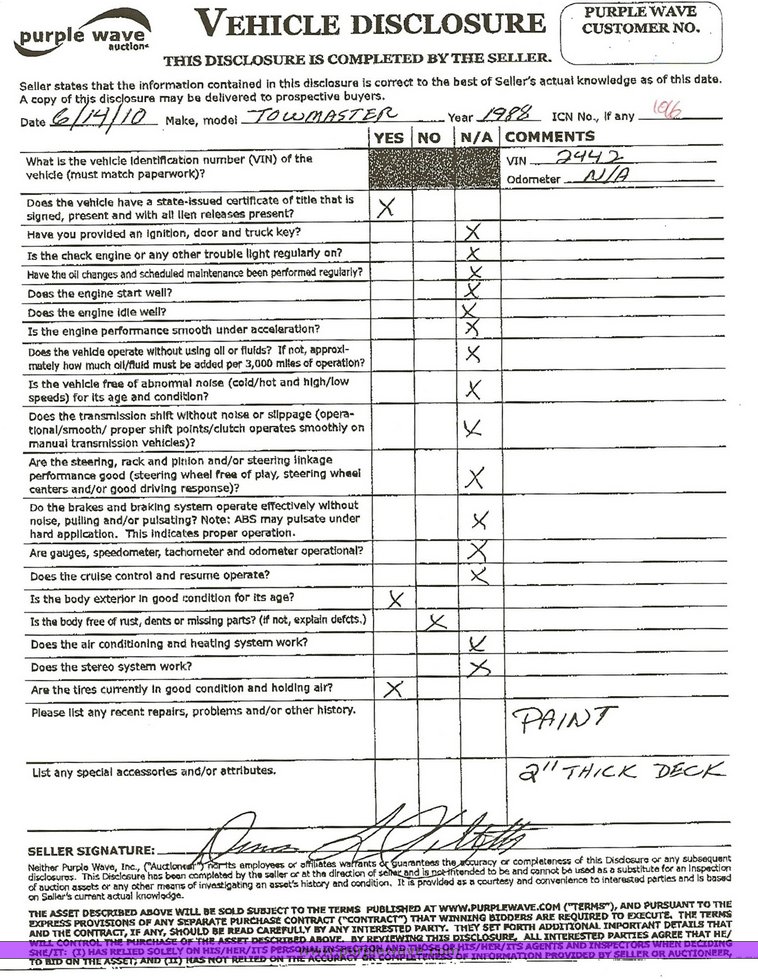 purple wave
auction
VEHICLE DISCLOSURE
PURPLE WAVE
CUSTOMER NO.
THIS DISCLOSURE IS COMPLETED BY THE SELLER.
Seller states that the information contained in this disclosure is correct to the best of Seller's actual knowledge as of this date.
A copy of this disclosure may be delivered to prospective buyers.
Date 6/14/10 Make, model TOWMASTER Year 1988 ICN No., if any
YES NO N/A COMMENTS
What is the vehicle identification number (VIN) of the
vehicle (must match paperwork)?
VIN 2442
Odometer N/A
Does the vehicle have a state-issued certificate of title that is
signed, present and with all lien releases present? X
Have you provided an ignition, door and truck key? X
Is the check engine or any other trouble light regularly on? X
Have the oil changes and scheduled maintenance been performed regularly? X
Does the engine start well? X
Does the engine idle well? X
Is the engine performance smooth under acceleration? X
Does the vehicle operate without using oil or fluids? If not, approxi-
mately how much oil/fluid must be added per 3,000 miles of operation? X
Is the vehicle free of abnormal noise (cold/hot and high/low
speeds) for its age and condition? X
Does the transmission shift without noise or slippage (opera-
tional/smooth/ proper shift points/clutch operates smoothly on
manual transmission vehicles)? X
Are the steering, rack and pinion and/or steering linkage
performance good (steering wheel free of play, steering wheel
centers and/or good driving response)? X
Do the brakes and braking system operate effectively without
noise, pulling and/or pulsating? Note: ABS may pulsate under
hard application. This indicates proper operation. X
Are gauges, speedometer, tachometer and odometer operational? X
Does the cruise control and resume operate? X
Is the body exterior in good condition for its age? X
Is the body free of rust, dents or missing parts? (if not, explain defcts.) X
Does the air conditioning and heating system work? X
Does the stereo system work? X
Are the tires currently in good condition and holding air? X
Please list any recent repairs, problems and/or other history. PAINT
List any special accessories and/or attributes. 2" THICK DECK
SELLER SIGNATURE:
Neither Purple Wave, Inc., ("Auctioneer") nor its employees or affiliates warrants or guarantees the accuracy or completeness of this Disclosure or any subsequent
disclosures. This Disclosure has been completed by the seller or at the direction of seller and is not intended to be and cannot be used as a substitute for an inspection
of auction assets or any other means of investigating an asset's history and condition. It is provided as a courtesy and convenience to interested parties and is based
on Seller's current actual knowledge.
THE ASSET DESCRIBED ABOVE WILL BE SOLD SUBJECT TO THE TERMS PUBLISHED AT WWW.PURPLEWAVE.COM ("TERMS"), AND PURSUANT TO THE
EXPRESS PROVISIONS OF ANY SEPARATE PURCHASE CONTRACT ("CONTRACT") THAT WINNING BIDDERS ARE REQUIRED TO EXECUTE. THE TERMS
AND THE CONTRACT, IF ANY, SHOULD BE READ CAREFULLY BY ANY INTERESTED PARTY. THEY SET FORTH ADDITIONAL IMPORTANT DETAILS THAT
WILL CONTROL THE PURCHASE OF THE ASSET DESCRIBED ABOVE. BY REVIEWING THIS DISCLOSURE, ALL INTERESTED PARTIES AGREE THAT HE/
SHE/IT: (I) HAS RELIED SOLELY ON HIS/HER/ITS PERSONAL INSPECTION AND THOSE OF HIS/HER/ITS AGENTS AND INSPECTORS WHEN DECIDING
TO BID ON THE ASSET; AND (II) HAS NOT RELIED ON THE ACCURACY OR COMPLETENESS OF INFORMATION PROVIDED BY SELLER OR AUCTIONEER,